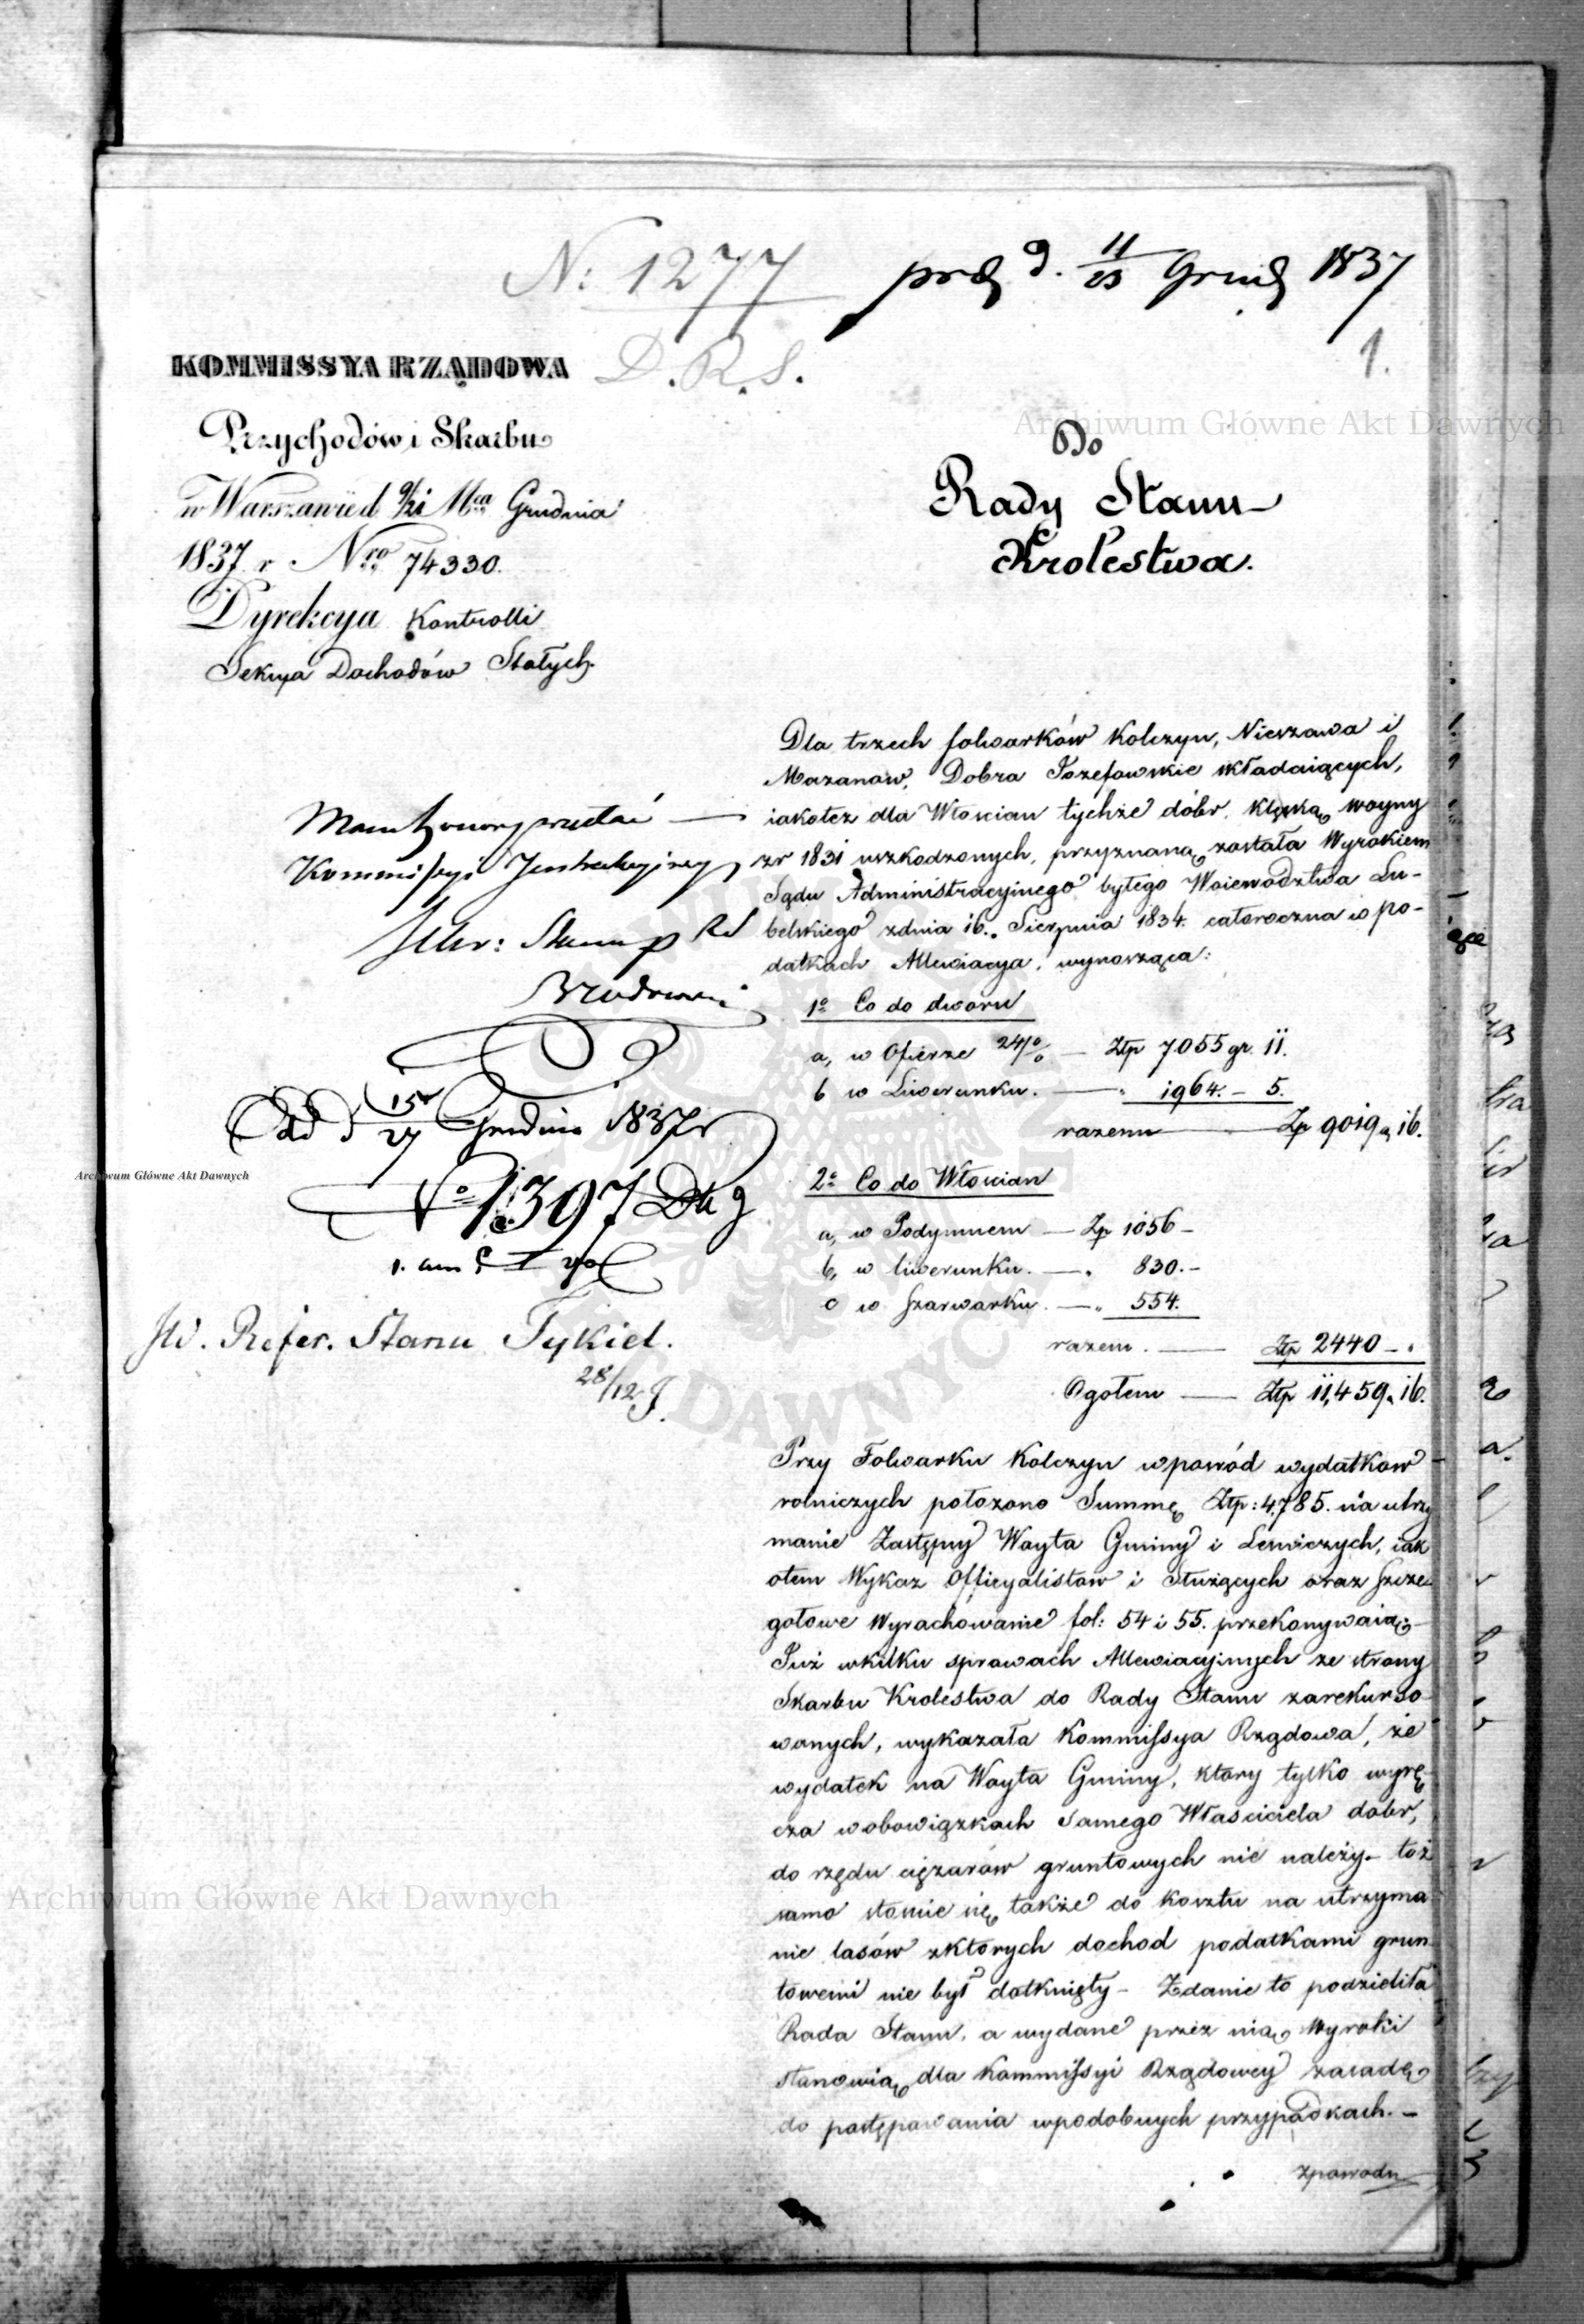 N: 1277
D.R.S.
prd d. 11/23 Grud 1837
1.
KOMMISSYA RZĄDOWA
Przychodów i Skarbu
w Warszawie d 9/21 Mca Grudnia
1837 r Nro 74330.
Dyrekcya Kontrolli
Sekcya Dochodów Stałych.
Do
Rady Stanu
Krolestwa.
Mam honor przesłać
Kommissyi Instrukcyjney
Sekr: Stanu
Od d 15/27 Grudnia 1837 r
No 1397
JW. Refer. Stanu Tykiel.
28/12
Dla trzech folwarków Kolczyn, Nieszawa i
Mazanow, Dobra Jozefowskie składaiących,
iakotez dla Włoscian tychże dóbr, klęską woyny
z r 1831 uszkodzonych, przyznaną została Wyrokiem
Sądu Administracyinego byłego Woiewodztwa Lu-
belskiego z dnia 16. Sierpnia 1834. całoroczna w po-
datkach Allewiacya, wynosząca:
1o Co do dworu
a, w Ofierze 24% — Złp 7055 gr. 11.
b w Liwerunku. — " 1964. – 5.
razem — Zp 9019 " 16.
2o Co do Włoscian
a, w Podymnem — Zp 1056 –
b, w liwerunku. — " 830. –
c w Szarwarku. — " 554.
razem. — Złp 2440 – "
Ogołem — Złp 11,459 " 16.
Przy Folwarku Kolczyn w powód wydatkow
rolniczych położono Summę Złp: 4,785. na utrzy
manie Zastępcy Wóyta Gminy i Lesniczych, iak
otem Wykaz Officyalistow i Służących oraz szcze
gołowe Wyrachowanie fol: 54 i 55. przekonywaią.
Już w kilku sprawach Allewiacyinych ze strony
Skarbu Krolestwa do Rady Stanu zarekurso
wanych, wykazała Kommissya Rządowa, że
wydatek na Woyta Gminy, ktory tylko wyrę
cza w obowiązkach samego Własciciela dobr,
do rzędu ciężarów gruntowych nie należy – toż
samo stosuie się także do kosztu na utrzyma
nie lasów z ktorych dochod podatkami grun
towemi nie był dotknięty – Zdanie to podzieliła
Rada Stanu, a wydane przez nią Wyroki
stanowią dla Kommissyi Rządowey zasadę
do postępowania w podobnych przypadkach. –
z powodu
Archiwum Główne Akt Dawnych
Archiwum Główne Akt Dawnych
Archiwum Główne Akt Dawnych